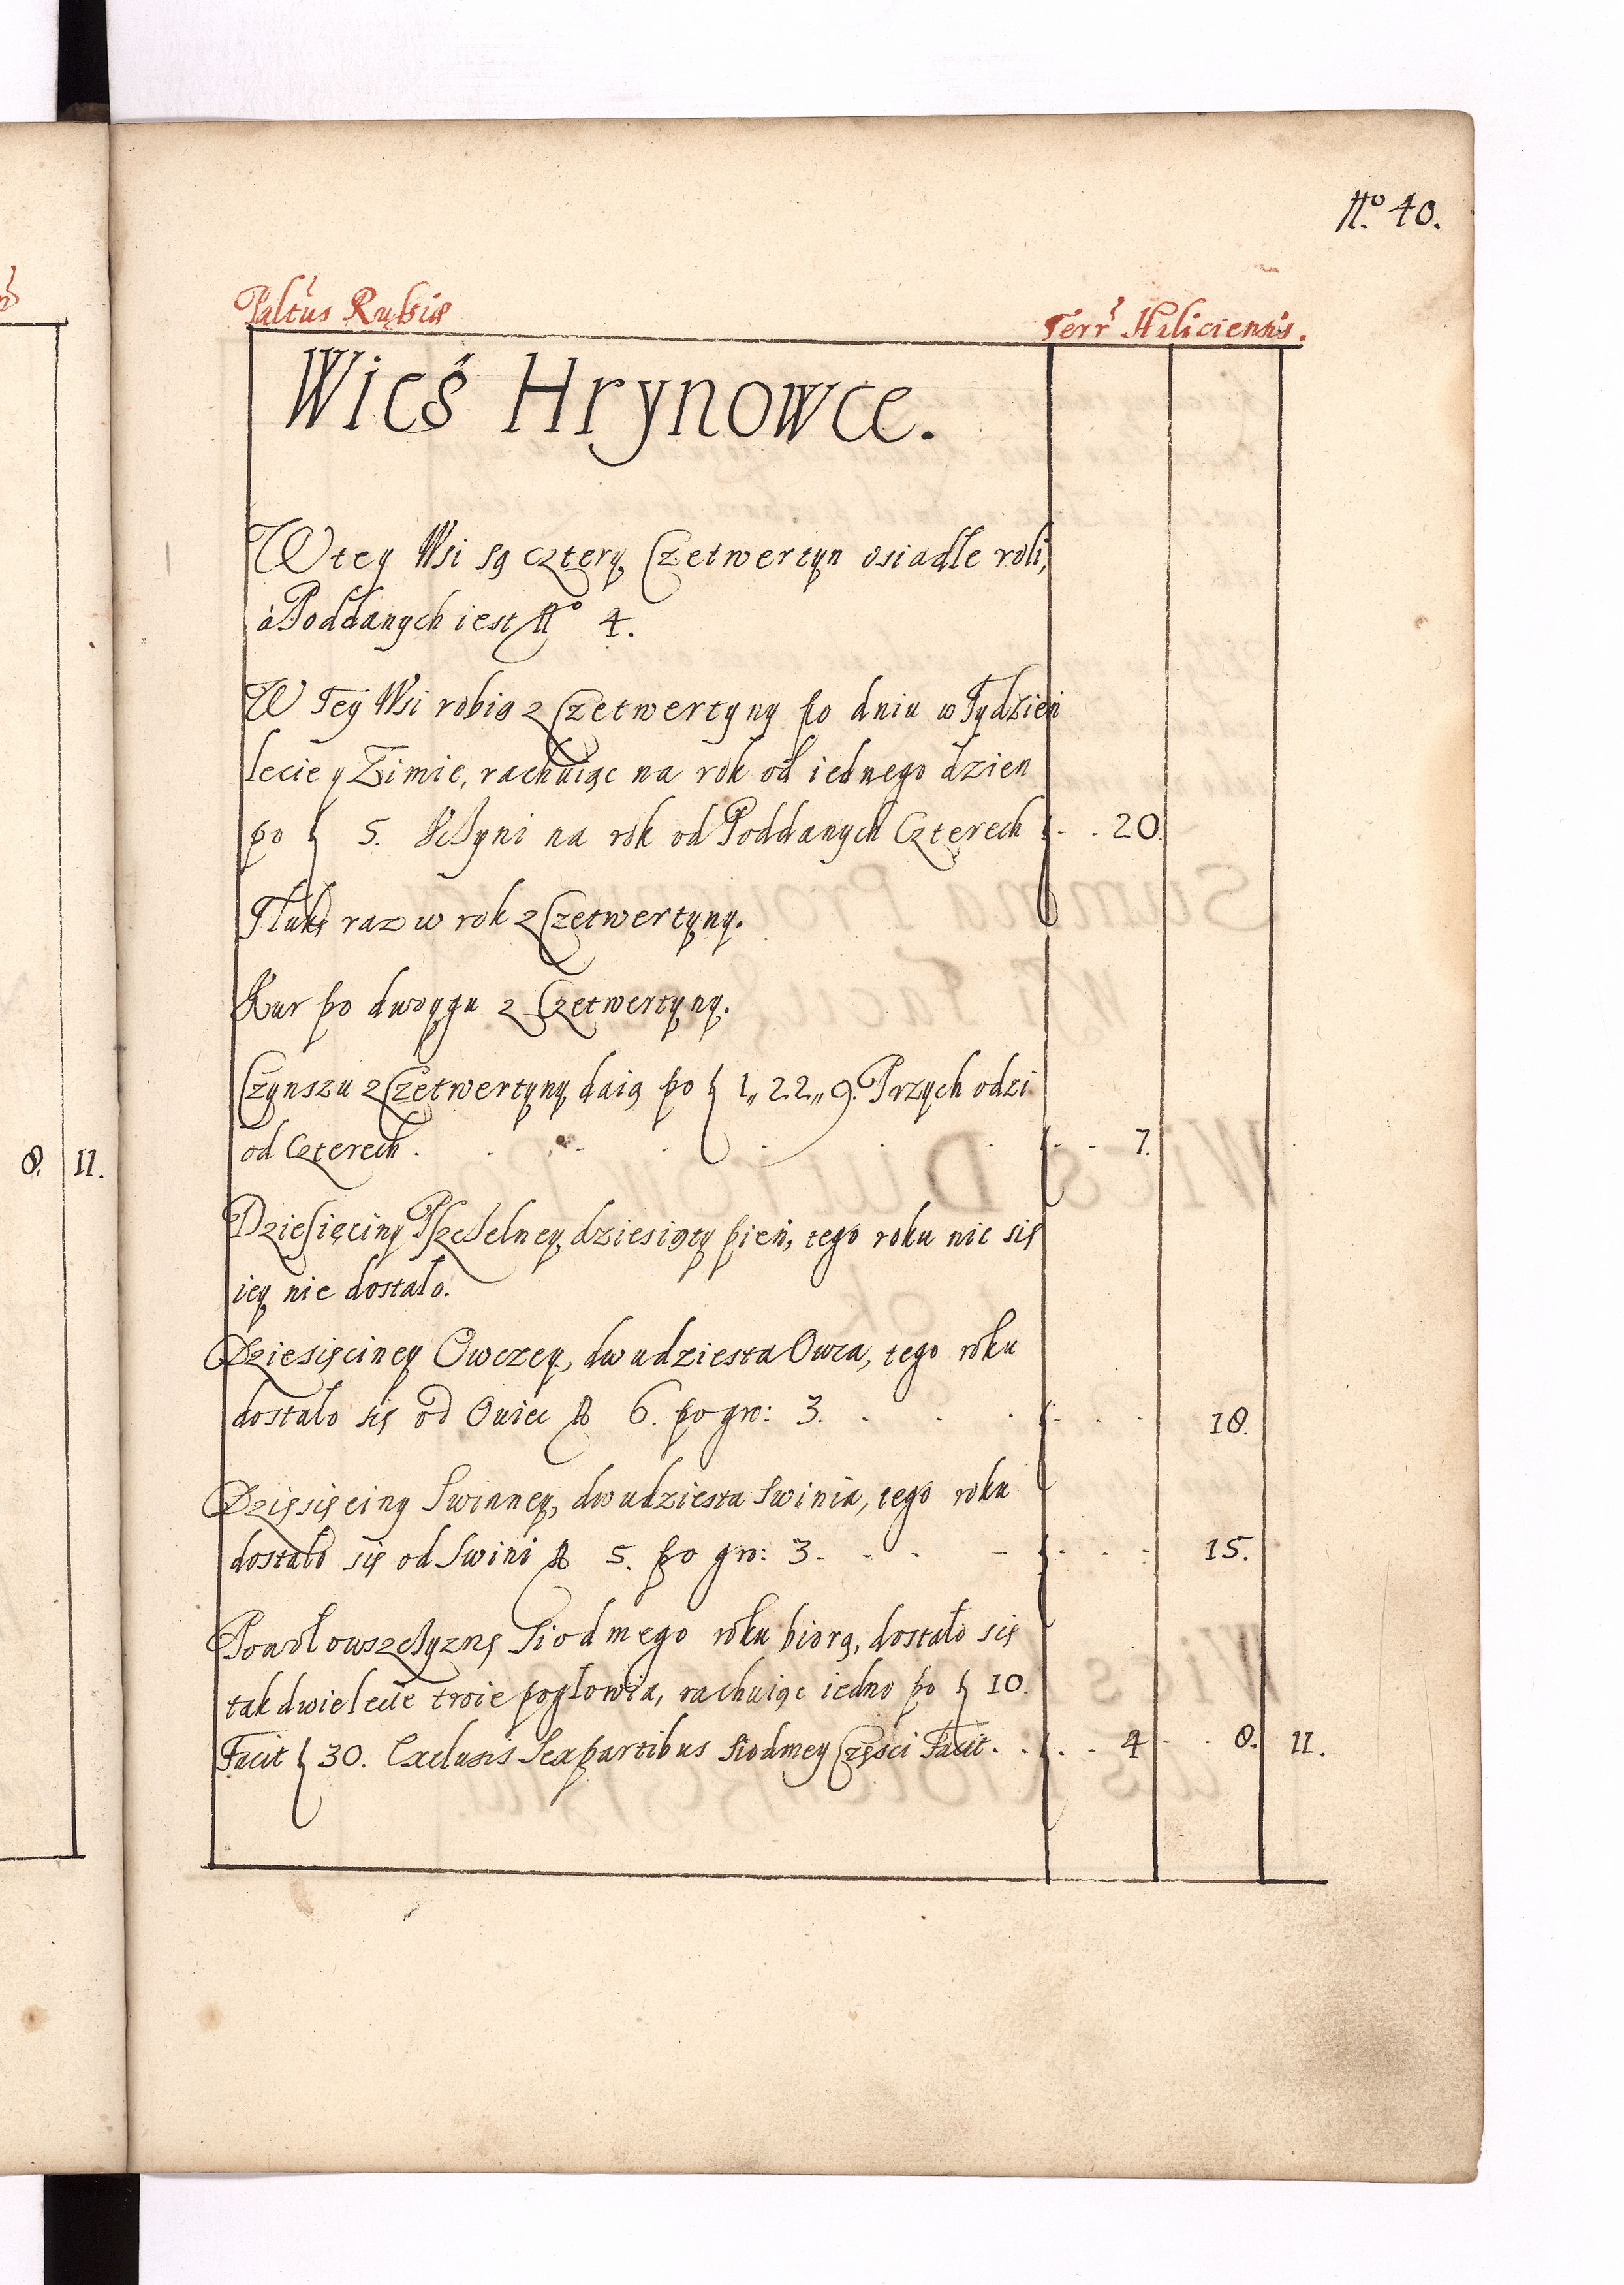 No. 40.
Paltus Russiæ Terr Haliciensis.
Wieś Hrynowce.
W tey Wsi są cztery Czetwertyn osiadłe roli,
à Poddanych iest No 4.
W Tey Wsi robią z Czetwertyny po dniu w Tydzień
lecie y Zimie, rachuiąc na rok od iednego dzien
po f 5. Uczyni na rok od Poddanych Czterech f - - 20.
Tłukę raz w rok z Czetwertyny.
Kur po dwoygu z Czetwertyny.
Czynszu z Czetwertyny daią po f 1„ 22„ 9. Przychodzi
od Czterech . . . . . . . f - - 7.
8. 11.
Dziesięciny Pszczelney dziesiąty pień, tego roku nic się
iey nie dostało.
Dziesięciney Owczey, dwudziesta Owca, tego roku
dostało się od Owiec No 6. po gro: 3. . . . f - - - 18.
Dzięsięciny Swinney, dwudziesta Swinia, tego roku
dostało się od Swini No 5. po gro: 3. - - - f - - - 15.
Powołowszczyznę Siodmego roku biorą, dostało się
tak dwielecie troie pogłowia, rachuiąc iedno po f 10.
Facit f 30. Exclusis Sex partibus Siodmey Części Facit . . f . - 4 - - 8. 11.